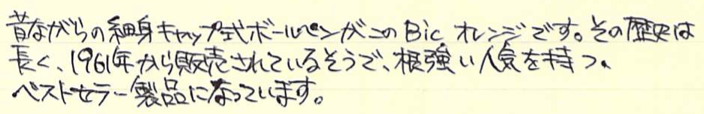 昔ながらの細身キャップ式ボールペンがこのBic オレンジです。その歴史は
長く、1961年から販売されているそうで、根強い人気を持つ、
ベストセラー製品になっています。